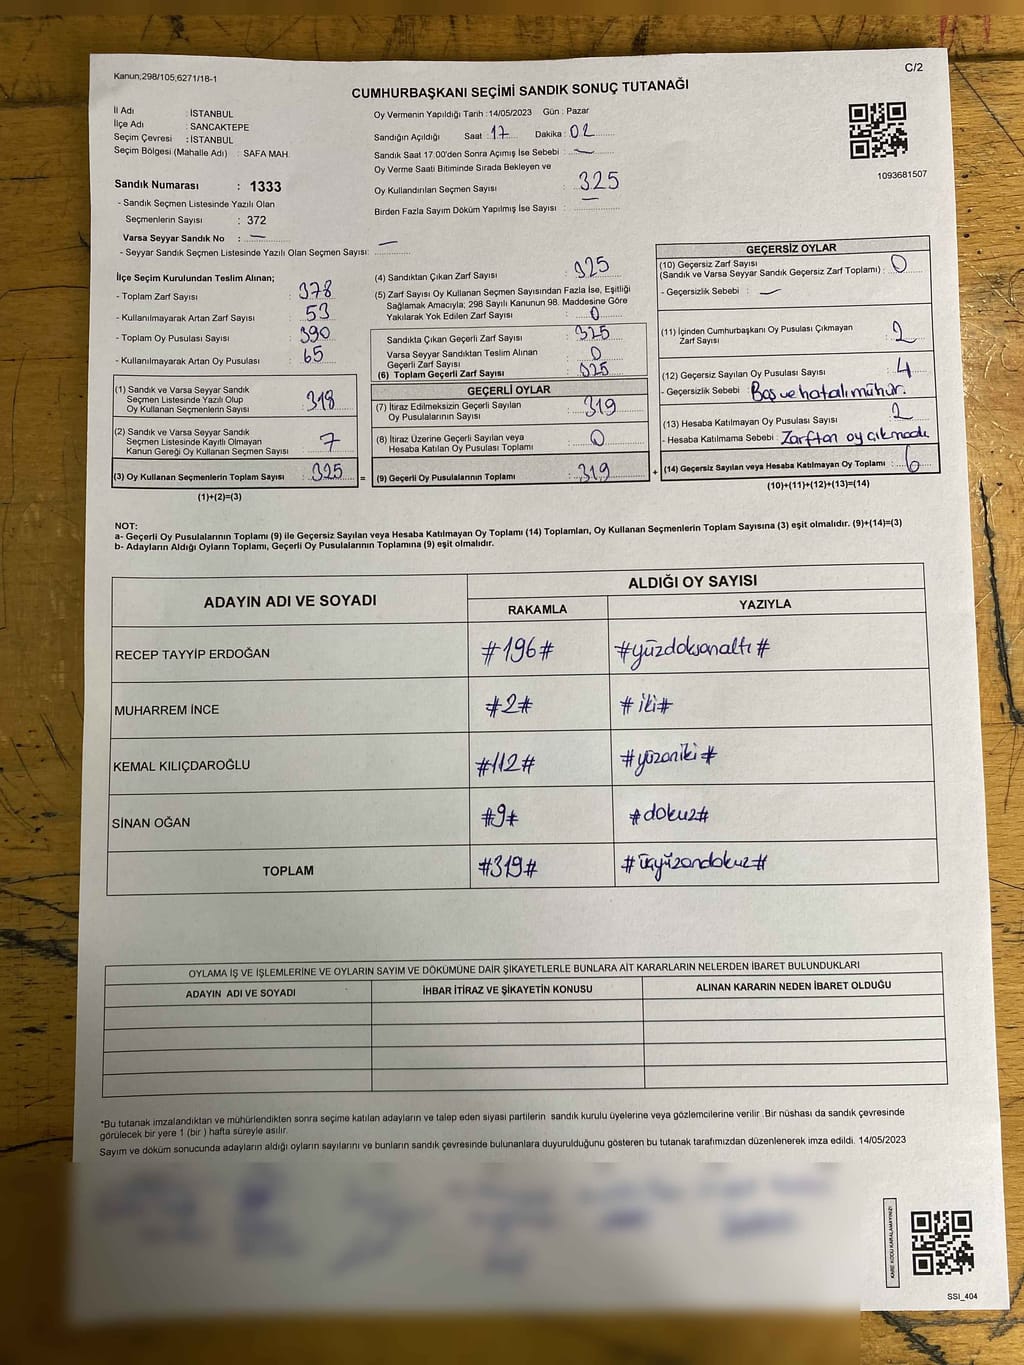 Kanun;298/105,6271/18-1
C/2
CUMHURBAŞKANI SEÇİMİ SANDIK SONUÇ TUTANAĞI
İl Adı : İSTANBUL
İlçe Adı : SANCAKTEPE
Seçim Çevresi : İSTANBUL
Seçim Bölgesi (Mahalle Adı) : SAFA MAH.
Sandık Numarası : 1333
- Sandık Seçmen Listesinde Yazılı Olan
Seçmenlerin Sayısı : 372
Varsa Seyyar Sandık No : —
- Seyyar Sandık Seçmen Listesinde Yazılı Olan Seçmen Sayısı: —
Oy Vermenin Yapıldığı Tarih :14/05/2023 Gün : Pazar
Sandığın Açıldığı Saat : 17 Dakika : 02
Sandık Saat 17.00'den Sonra Açımış İse Sebebi : —
Oy Verme Saati Bitiminde Sırada Bekleyen ve
Oy Kullandırılan Seçmen Sayısı : 325
Birden Fazla Sayım Döküm Yapılmış İse Sayısı : —
1093681507
İlçe Seçim Kurulundan Teslim Alınan;
- Toplam Zarf Sayısı : 378
- Kullanılmayarak Artan Zarf Sayısı : 53
- Toplam Oy Pusulası Sayısı : 390
- Kullanılmayarak Artan Oy Pusulası : 65
(1) Sandık ve Varsa Seyyar Sandık
Seçmen Listesinde Yazılı Olup
Oy Kullanan Seçmenlerin Sayısı : 318
(2) Sandık ve Varsa Seyyar Sandık
Seçmen Listesinde Kayıtlı Olmayan
Kanun Gereği Oy Kullanan Seçmen Sayısı : 7
(3) Oy Kullanan Seçmenlerin Toplam Sayısı : 325 =
(1)+(2)=(3)
(4) Sandıktan Çıkan Zarf Sayısı : 325
(5) Zarf Sayısı Oy Kullanan Seçmen Sayısından Fazla İse, Eşitliği
Sağlamak Amacıyla; 298 Sayılı Kanunun 98. Maddesine Göre
Yakılarak Yok Edilen Zarf Sayısı : 0
Sandıkta Çıkan Geçerli Zarf Sayısı : 325
Varsa Seyyar Sandıktan Teslim Alınan
Geçerli Zarf Sayısı : 0
(6) Toplam Geçerli Zarf Sayısı : 325
GEÇERLİ OYLAR
(7) İtiraz Edilmeksizin Geçerli Sayılan
Oy Pusulalarının Sayısı : 319
(8) İtiraz Üzerine Geçerli Sayılan veya
Hesaba Katılan Oy Pusulası Toplamı : 0
(9) Geçerli Oy Pusulalarının Toplamı : 319 +
GEÇERSİZ OYLAR
(10) Geçersiz Zarf Sayısı
(Sandık ve Varsa Seyyar Sandık Geçersiz Zarf Toplamı) : 0
- Geçersizlik Sebebi : —
(11) İçinden Cumhurbaşkanı Oy Pusulası Çıkmayan
Zarf Sayısı : 2
(12) Geçersiz Sayılan Oy Pusulası Sayısı : 4
- Geçersizlik Sebebi : Boş ve hatalı mühür.
(13) Hesaba Katılmayan Oy Pusulası Sayısı : 2
- Hesaba Katılmama Sebebi : Zarftan oy çıkmadı.
(14) Geçersiz Sayılan veya Hesaba Katılmayan Oy Toplamı : 6
(10)+(11)+(12)+(13)=(14)
NOT:
a- Geçerli Oy Pusulalarının Toplamı (9) ile Geçersiz Sayılan veya Hesaba Katılmayan Oy Toplamı (14) Toplamları, Oy Kullanan Seçmenlerin Toplam Sayısına (3) eşit olmalıdır. (9)+(14)=(3)
b- Adayların Aldığı Oyların Toplamı, Geçerli Oy Pusulalarının Toplamına (9) eşit olmalıdır.
ADAYIN ADI VE SOYADI
ALDIĞI OY SAYISI
RAKAMLA YAZIYLA
RECEP TAYYİP ERDOĞAN #196# #yüzdoksanaltı#
MUHARREM İNCE #2# #iki#
KEMAL KILIÇDAROĞLU #112# #yüzoniki#
SİNAN OĞAN #9# #dokuz#
TOPLAM #319# #üçyüzondokuz#
OYLAMA İŞ VE İŞLEMLERİNE VE OYLARIN SAYIM VE DÖKÜMÜNE DAİR ŞİKAYETLERLE BUNLARA AİT KARARLARIN NELERDEN İBARET BULUNDUKLARI
ADAYIN ADI VE SOYADI İHBAR İTİRAZ VE ŞİKAYETİN KONUSU ALINAN KARARIN NEDEN İBARET OLDUĞU
*Bu tutanak imzalandıktan ve mühürlendikten sonra seçime katılan adayların ve talep eden siyasi partilerin sandık kurulu üyelerine veya gözlemcilerine verilir .Bir nüshası da sandık çevresinde
görülecek bir yere 1 (bir ) hafta süreyle asılır.
Sayım ve döküm sonucunda adayların aldığı oyların sayılarını ve bunların sandık çevresinde bulunanlara duyurulduğunu gösteren bu tutanak tarafımızdan düzenlenerek imza edildi. 14/05/2023
KARE KODU KARALAMAYINIZ!
SSİ_404